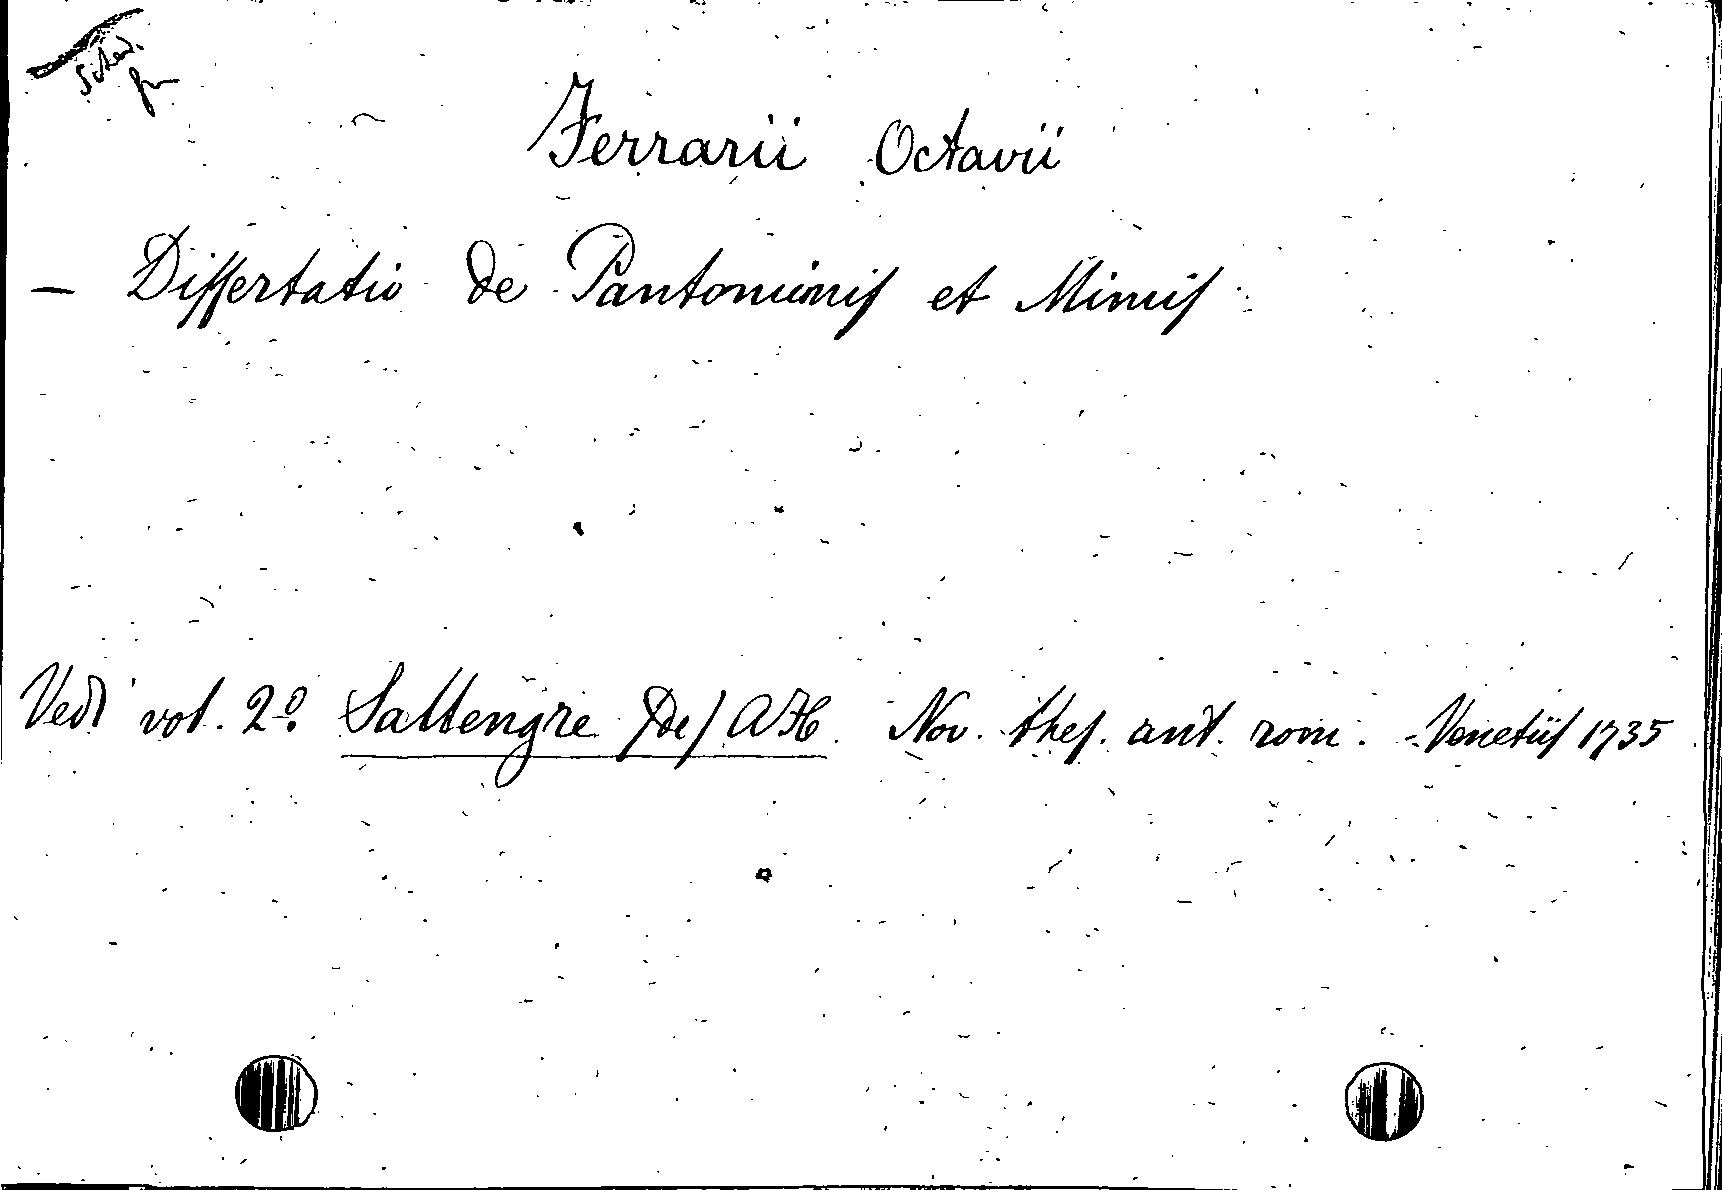 Sched.
Ferrarii Octavii
– Diſſertatio de Pantomimiſ et Mimiſ
Vedi vol. 2º Sallengre (de) A H. Nov. theſ. ant. rom. - Venetiiſ 1735